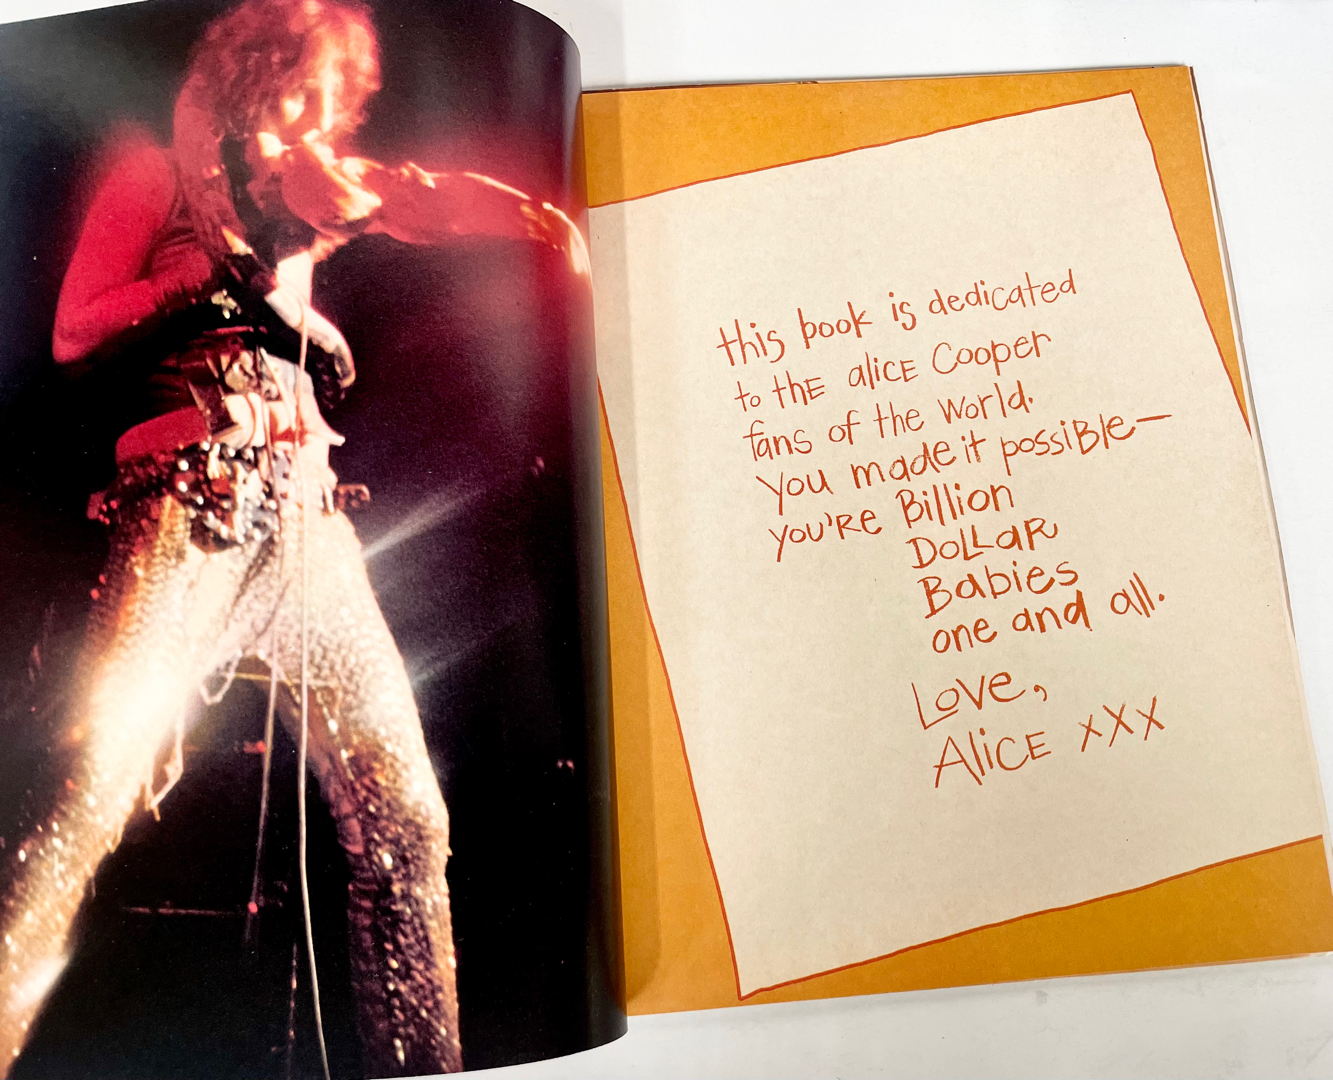 this book is dedicated
to thE alicE Cooper
fans of the World.
you made it possiBle—
you'RE Billion
DoLLaR
Babies
one and all.
Love,
AlicE xXx